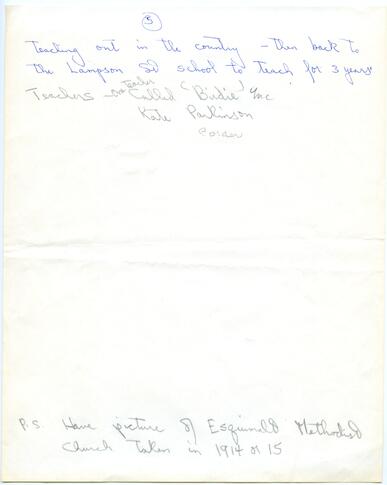 5
teaching out in the country - then back to
the Lampson St school to teach for 3 years
teacher
Teachers - one Called "Birdie"
Kate Parkinson
P.S. Have picture of Esquimalt Methodist
Church taken in 1914 or 15